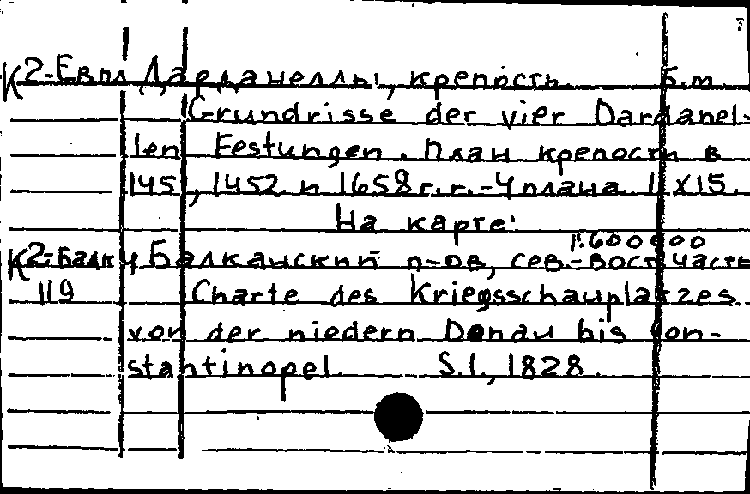 К2-Евпл Дарданеллы, крепость. Б.м.
Grundrisse der vier Dardanel-
len Festungen. План крепости в
1451, 1452 и 1658 г.г.-4 плана 11x15.
На карте:
1:600000
К2-Балк Балканский п-ов, сев.-вост. часть
119 Charte des Kriegsschauplatzes
von der niedern Donau bis Con-
stantinopel. S.l., 1828.